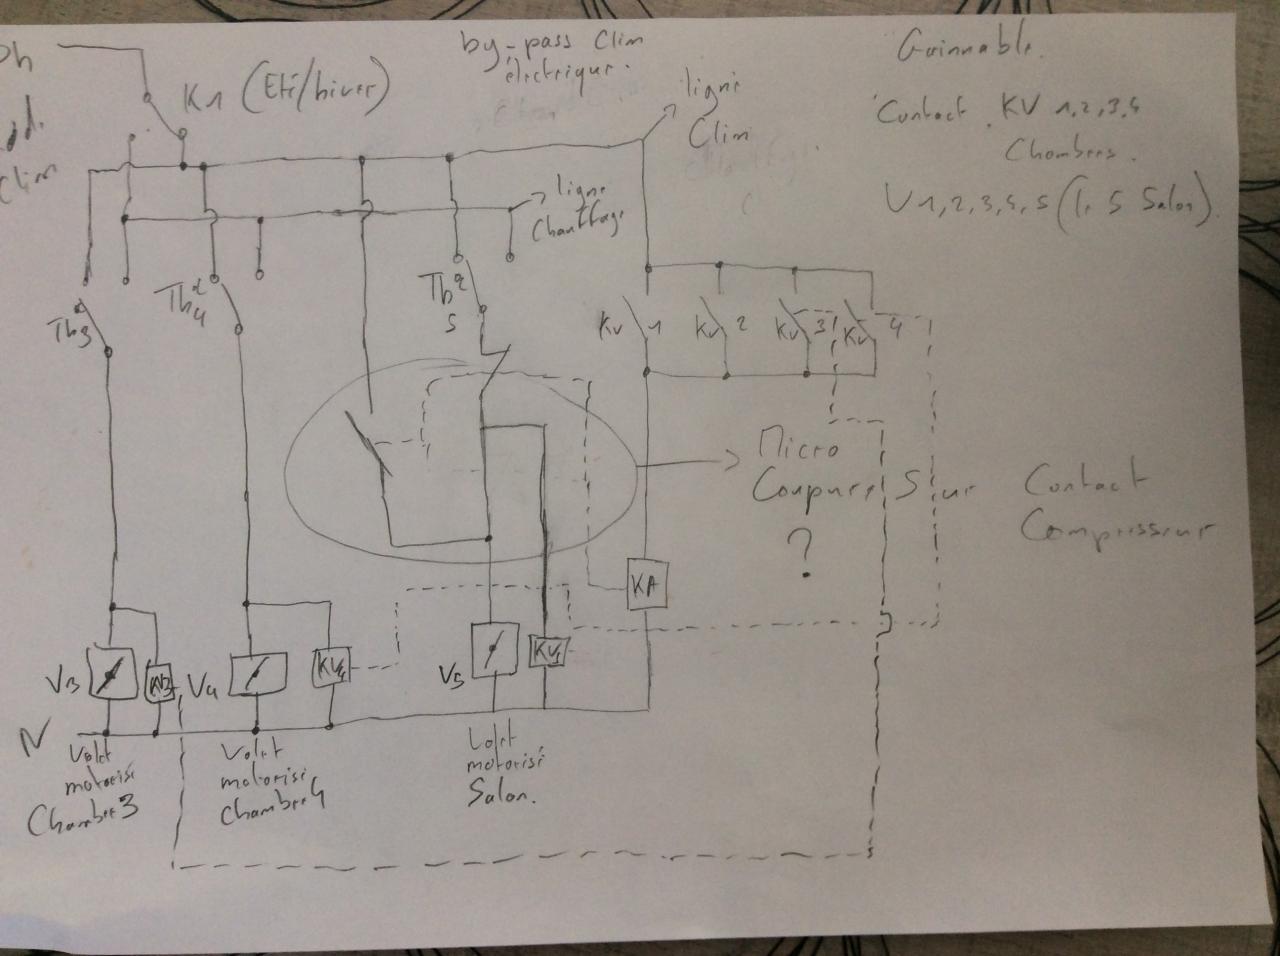 Ph
K1 (Eté/hiver)
by-pass Clim
électrique.
ligne
Clim
Gainnable.
Contact KV 1,2,3,4
Chambres.
V 1,2,3,4,5 (le 5 Salon).
Clim
ligne
Chauffage
Th3
Th4
Th
5
Kv 1
Kv 2
Kv 3
Kv 4
Micro
Coupure Sur
?
Contact
Compresseur
KA
V3
KV3
V4
KV4
V5
KV5
N
Volet
motorisé
Chambre 3
Volet
motorisé
Chambre 4
Volet
motorisé
Salon.